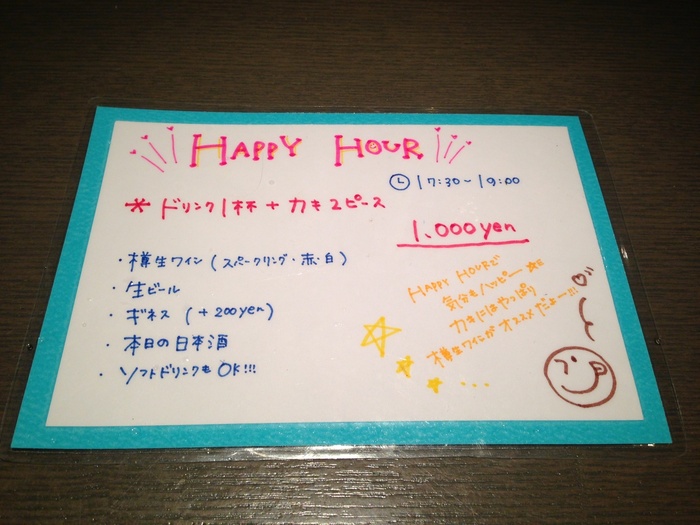 HAPPY HOUR
17:30~19:00
* ドリンク1杯 + カキ2ピース
1,000yen
・樽生ワイン (スパークリング・赤・白)
・生ビール
・ギネス (+200yen)
・本日の日本酒
・ソフトドリンクもOK!!!
HAPPY HOURで
気分もハッピー★☆
カキにはやっぱり
樽生ワインがオススメだよー!!!